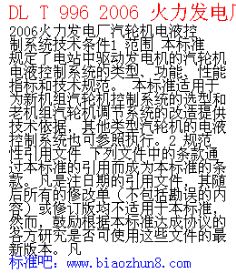 DL T 996 2006 火力发电厂
2006火力发电厂汽轮机电液控
制系统技术条件1 范围 本标准
规定了电站中驱动发电机的汽轮机
电液控制系统的类型、功能、性能
指标和技术规范。 本标准适用于
为新机组汽轮机控制系统的选型和
老机组汽轮机调节系统的改造提供
技术依据，其他类型汽轮机的电液
控制系统也可参照执行。2 规范
性引用文件 下列文件中的条款通
过本标准的引用而成为本标准的条
款。凡是注日期的引用文件，其随
后所有的修改单（不包括勘误的内
容）或修订版均不适用于本标准，
然而，鼓励根据本标准达成协议的
各方研究是否可使用这些文件的最
新版本。凡
标准吧：www.biaozhun8.com